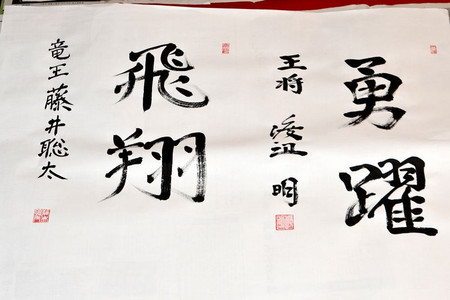 勇躍
王将 渡辺 明
飛翔
竜王 藤井聡太